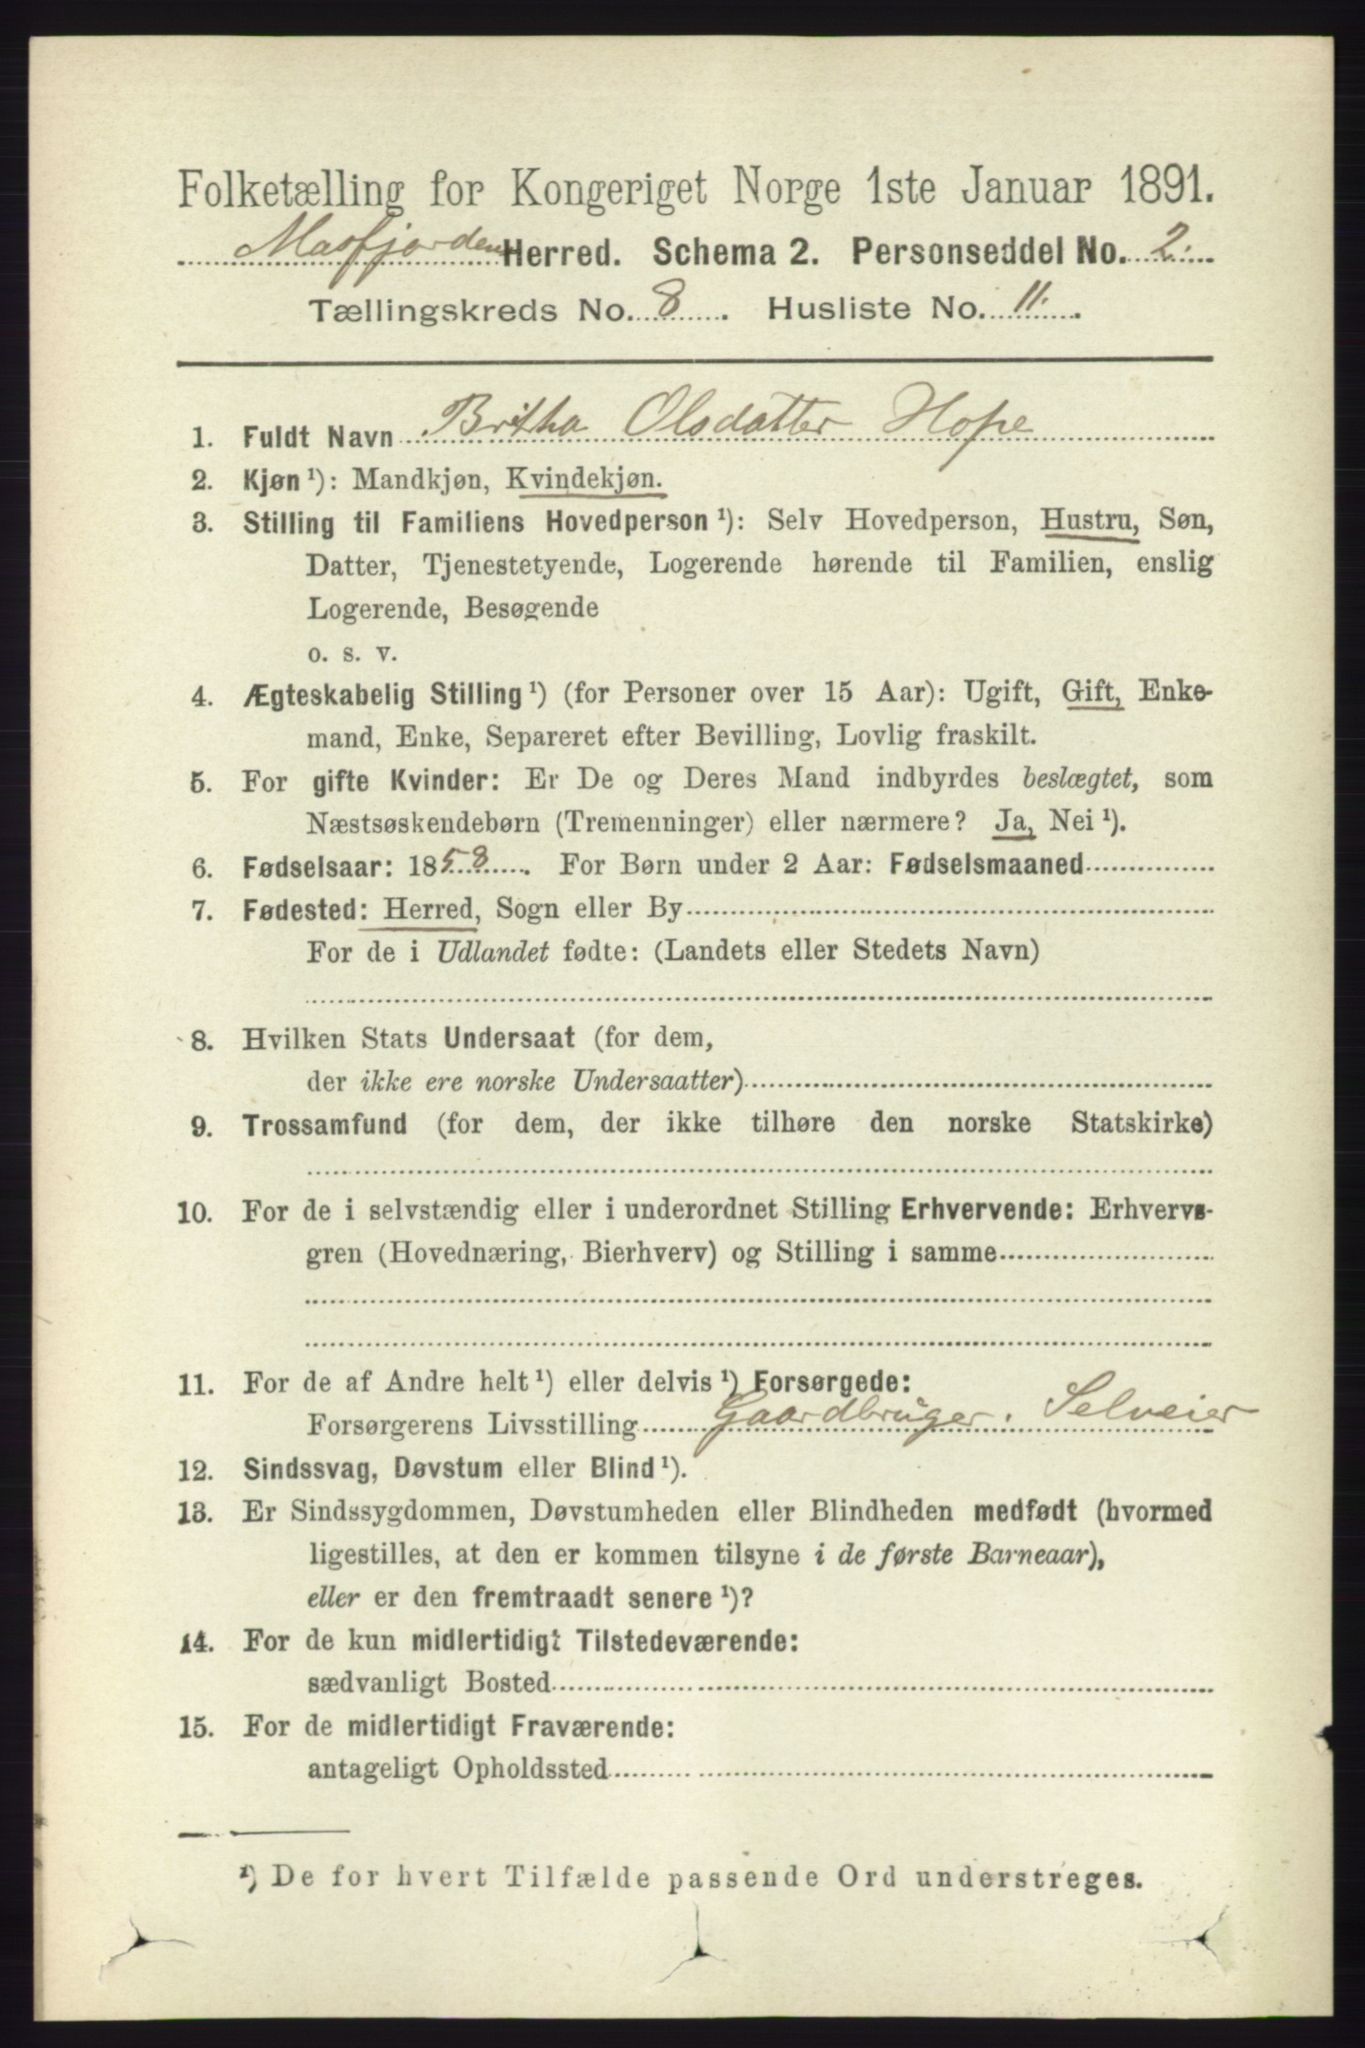 Folketælling for Kongeriget Norge 1ste Januar 1891.
Masfjorden Herred. Schema 2. Personseddel No. 2.
Tællingskreds No. 8. Husliste No. 11.
1. Fuldt Navn Britha Olsdatter Hope
2. Kjøn¹): Mandkjøn, Kvindekjøn.
3. Stilling til Familiens Hovedperson¹): Selv Hovedperson, Hustru, Søn,
Datter, Tjenestetyende, Logerende hørende til Familien, enslig
Logerende, Besøgende
o. s. v.
4. Ægteskabelig Stilling¹) (for Personer over 15 Aar): Ugift, Gift, Enke-
mand, Enke, Separeret efter Bevilling, Lovlig fraskilt.
5. For gifte Kvinder: Er De og Deres Mand indbyrdes beslægtet, som
Næstsøskendebørn (Tremenninger) eller nærmere? Ja, Nei¹).
6. Fødselsaar: 1858. For Børn under 2 Aar: Fødselsmaaned
7. Fødested: Herred, Sogn eller By
For de i Udlandet fødte: (Landets eller Stedets Navn)
8. Hvilken Stats Undersaat (for dem,
der ikke ere norske Undersaatter)
9. Trossamfund (for dem, der ikke tilhøre den norske Statskirke)
10. For de i selvstændig eller i underordnet Stilling Erhvervende: Erhvervs-
gren (Hovednæring, Bierhverv) og Stilling i samme
11. For de af Andre helt¹) eller delvis¹) Forsørgede:
Forsørgerens Livsstilling Gaardbruger. Selveier
12. Sindssvag, Døvstum eller Blind¹).
13. Er Sindssygdommen, Døvstumheden eller Blindheden medfødt (hvormed
ligestilles, at den er kommen tilsyne i de første Barneaar),
eller er den fremtraadt senere¹)?
14. For de kun midlertidigt Tilstedeværende:
sædvanligt Bosted
15. For de midlertidigt Fraværende:
antageligt Opholdssted
¹) De for hvert Tilfælde passende Ord understreges.